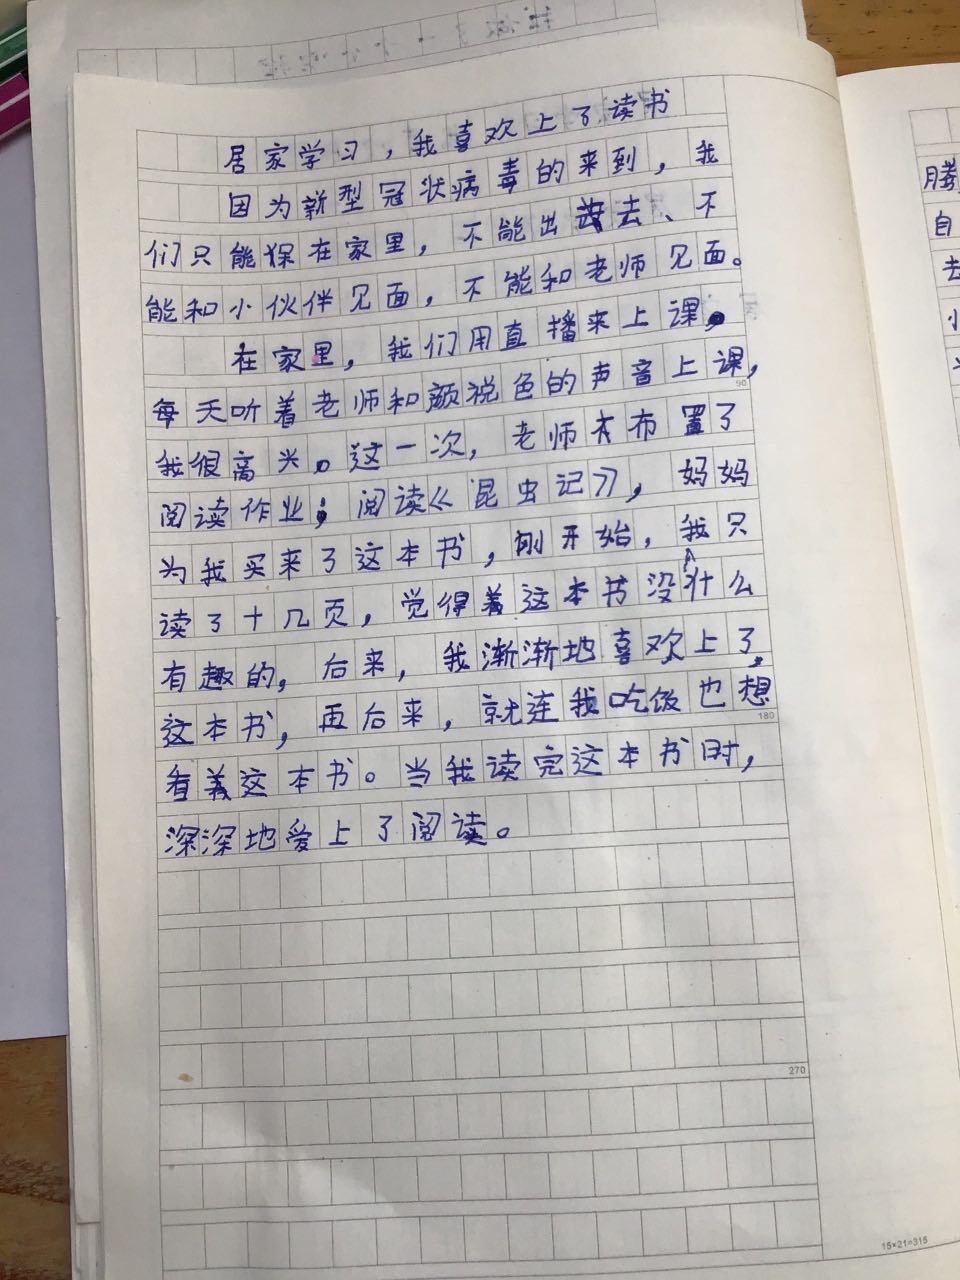 居家学习，我喜欢上了读书
因为新型冠状病毒的来到，我
们只能保在家里，不能出去、不
能和小伙伴见面，不能和老师见面。
在家里，我们用直播来上课。
每天听着老师和颜悦色的声音上课，
我很高兴。这一次，老师布置了
阅读作业；阅读《昆虫记》，妈妈
为我买来了这本书，刚开始，我只
读了十几页，觉得着这本书没什么
有趣的，后来，我渐渐地喜欢上了
这本书，再后来，就连我吃饭也想
看着这本书。当我读完这本书时，
深深地爱上了阅读。
90
180
270
15×21=315
腾
自
去
小